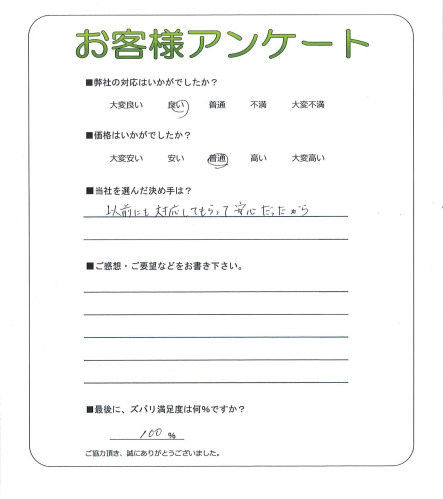 お客様アンケート
■弊社の対応はいかがでしたか？
大変良い 良い 普通 不満 大変不満
■価格はいかがでしたか？
大変安い 安い 普通 高い 大変高い
■当社を選んだ決め手は？
以前にも対応してもらって安心だったから
■ご感想・ご要望などをお書き下さい。
■最後に、ズバリ満足度は何％ですか？
100 %
ご協力頂き、誠にありがとうございました。